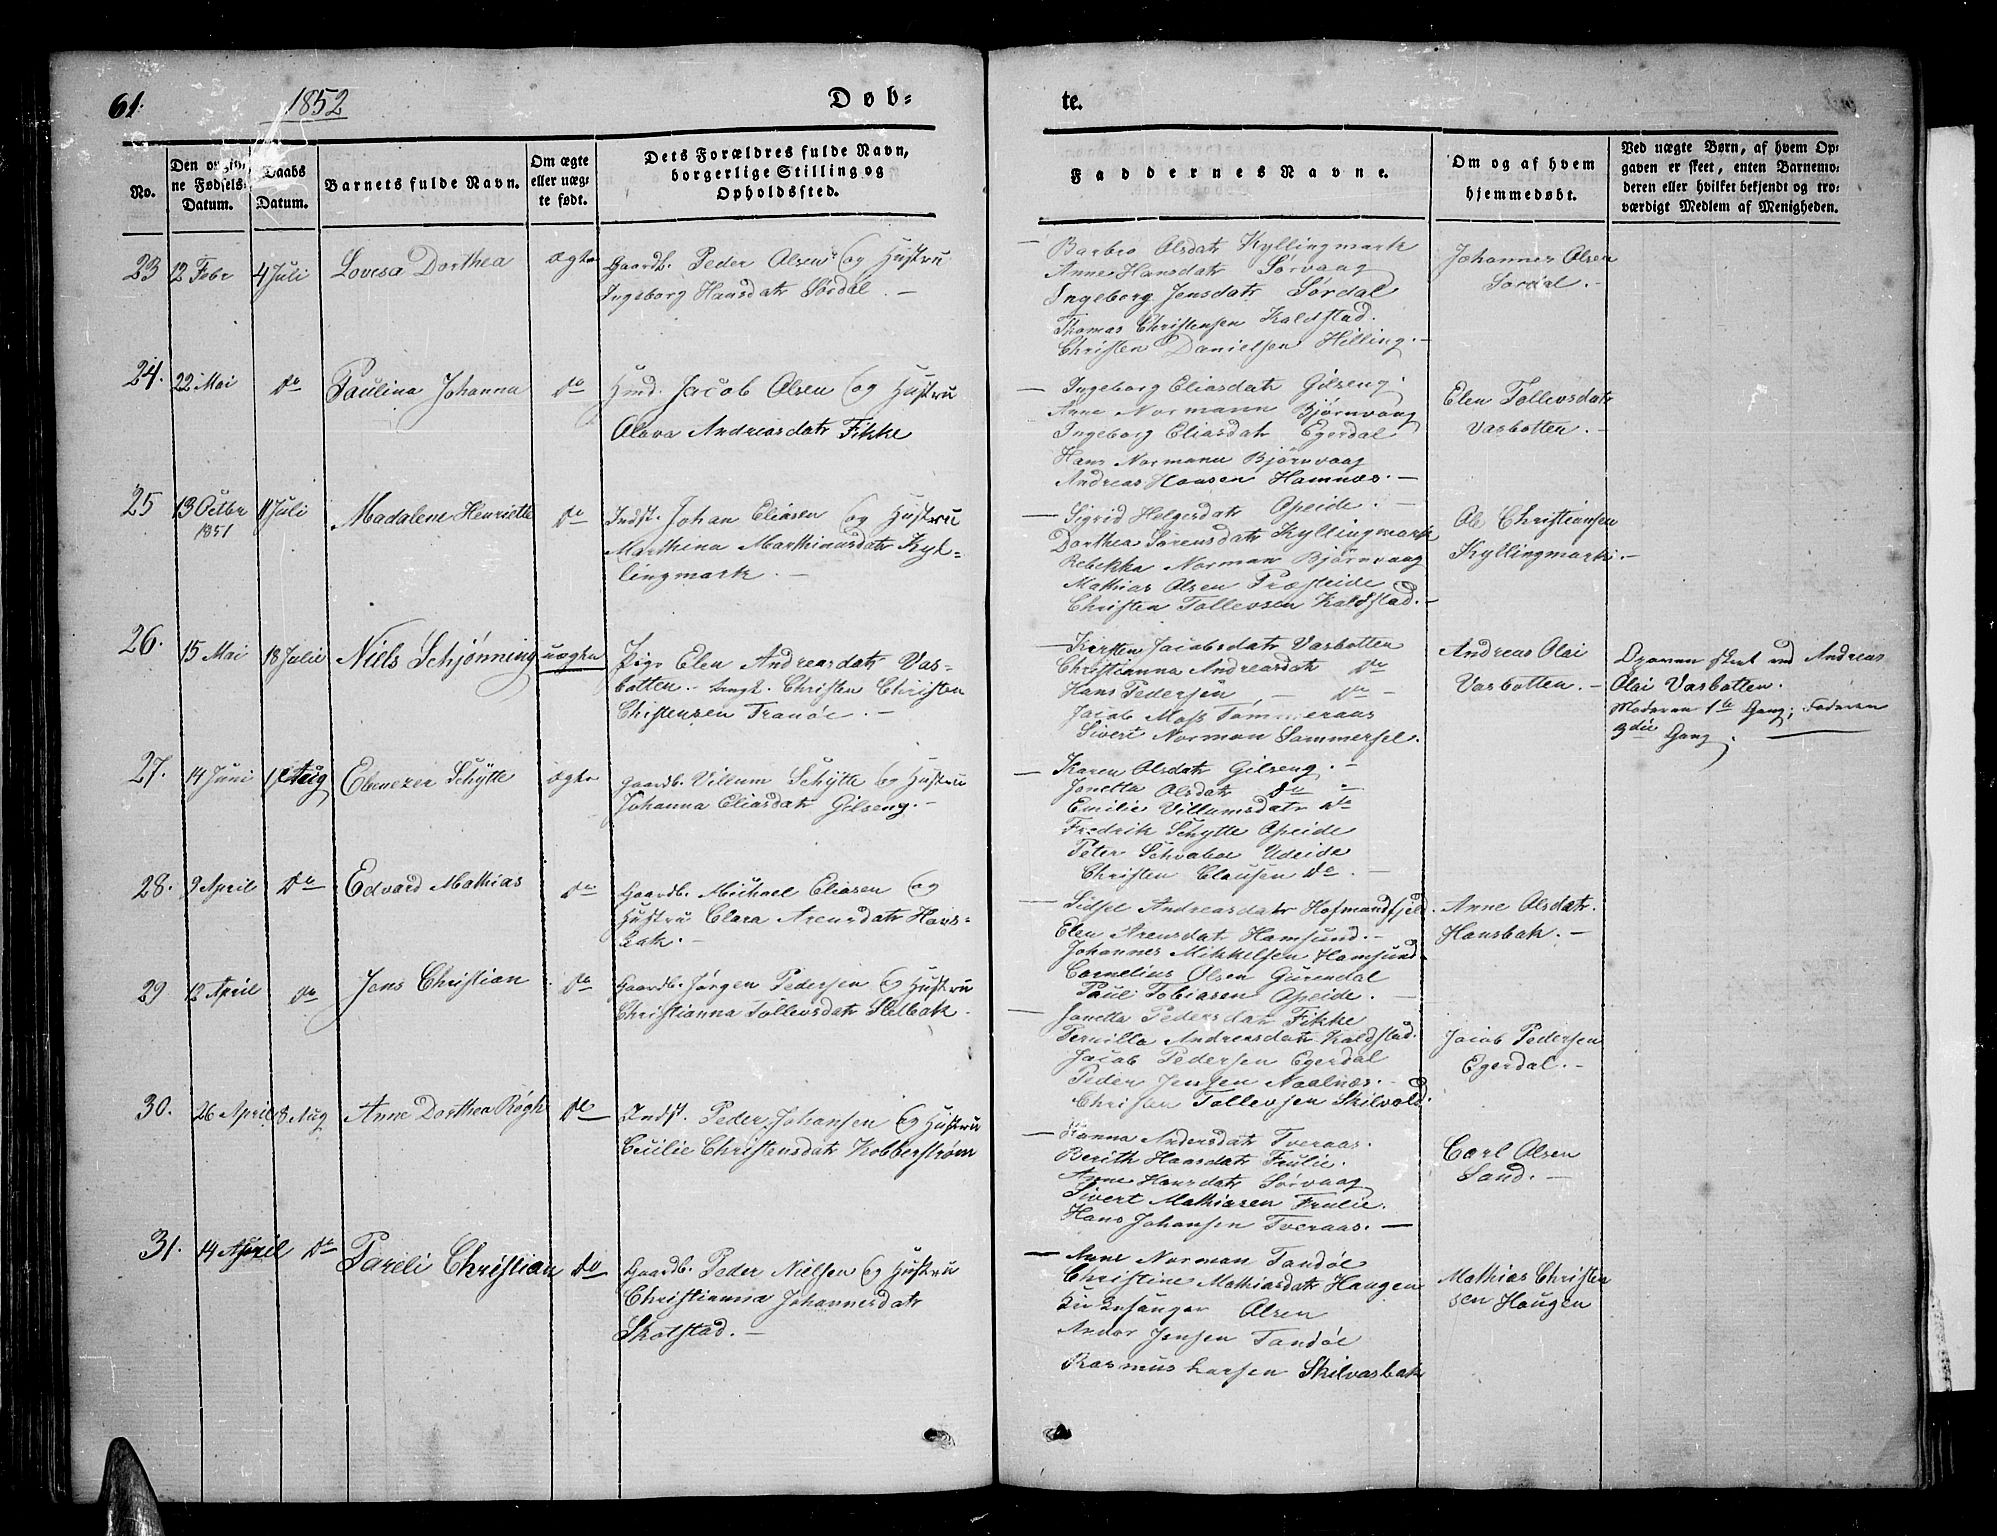 61.
1852
Døb-
te.
No.
Den
ne Fødsels-
Datum.
Daabs
Datum.
Barnets fulde Navn.
Om ægte
eller uæg-
te født.
Dets Forældres fulde Navn,
borgerlige Stilling og
Opholdssted.
Faddernes Navne.
Om og af hvem
hjemmedøbt.
Ved uægte Børn, af hvem Op-
gaven er skeet, enten Barnemo-
deren eller hvilket bekjendt og tro-
værdigt Medlem af Menigheden.
23 12 Febr 4 Juli Lovisa Dorthea ægte
Gaardb. Peder Olsen og Hustru
Ingeborg Hansdatr Sørdal. —
— Barbro Olsdatr Kyllingmark
Anne Hansdatr Sørvaag
Ingeborg Jensdatr Sørdal
Thomas Christensen Kaldstad.
Christen Danielsen Hilling. —
Johannes Olsen
Sørdal. —
24. 22 Mai do Paulina Johanna do
Hmd. Jacob Olsen og Hustru
Olava Andreasdatr Fikke
— Ingeborg Eliasdatr Gilseng.
Anne Normann Bjørnvaag
Ingeborg Eliasdatr Egerdal
Hans Normann Bjørnvaag
Andreas Hansen Hamnæs. —
Elen Tollevsdatr
Vasbotten. —
25 13 Octbr 11 Juli Madalene Henriette do
1851
Indst. Johan Eliasen og Hustru
Marthina Marthinusdatr Kyl-
lingmark. —
— Sigrid Helgesdatr Opeide.
Dorthea Sørensdatr Kyllingmark
Rebekka Norman Bjørnvaag
Mathias Olsen Præsteide
Christen Tollevsen Kaldstad. —
Ole Christiansen
Kyllingmark. —
26. 15 Mai 18 Julii Niels Schjønning uægte
Pige Elen Andreasdatr Vas-
botten. — Ungk. Christen Christen
Christensen Tranøe. —
— Kirsten Jacobsdatr Vasbotten
Christianna Andreasdatr do
Hans Pedersen — do —
Jacob Moss Tømmeraas
Sivert Norman Sommersel. —
Andreas Olai
Vasbotten. —
Opgaven skeet ved Andreas
Olai Vasbotten.
Moderen 1te Gang; Faderen
3die Gang.
27. 14 Juni 1 Aug Ebenezer Schytte ægte
Gaardb. Villum Schytte og Hustru
Johanna Eliasdatr Gilseng. —
— Karen Olsdatr Gilseng. —
Jonetta Olsdatr do —
Emilie Villumsdatr do
Fredrik Schytte Opeide
Peter Schvabe Udeide
Christen Clausen do. —
28. 9 April do Edvard Mathias do
Gaardb. Michael Eliasen og
Hustru Clara Arensdatr Havs-
bak. —
— Sidsel Andreasdatr Hofmandfjeld.
Elen Arensdatr Hamsund. —
Johannes Mikkelsen Hamsund
Cornelius Olsen
Paul Tobiasen Opeide. —
Anne Olsdatr.
Hausbak. —
29 12 April do Jens Christian do
Gaardb. Jørgen Pedersen og Hustru
Christianna Tollevsdatr Slelbak.
— Jonetta Pedersdatr Fikke
Pernilla Andreasdatr Kaldstad.
Jacob Pedersen Egerdal
Peder Jensen Naalnæs. —
Tollevsen Skilvold.
Jacob Pedersen
Egerdal. —
30. 26 April 8 Aug Anne Dorthea Røgh do
Indst. Peder Johansen og Hustru
Cecilie Christensdatr Kobberstrøm
— Hanna Andersdatr Tveraas.
Berith Hansdatr Frulie.
Anne Hansdatr Sørvaag
Sivert Mathiasen Frulie.
Hans Johansen Tveraas. —
Carl Olsen
Sand. —
31. 14 April do Pareli Christian do
Gaardb. Peder Nielsen og Hustru
Christianna Johannesdatr
Skotstad. —
— Anne Norman Tandøe
Christine Mathiasdatr Haugen
Olsen
Andor Jensen Tandøe
Rasmus Larsen Skilvasbak
Mathias Christen
sen Haugen